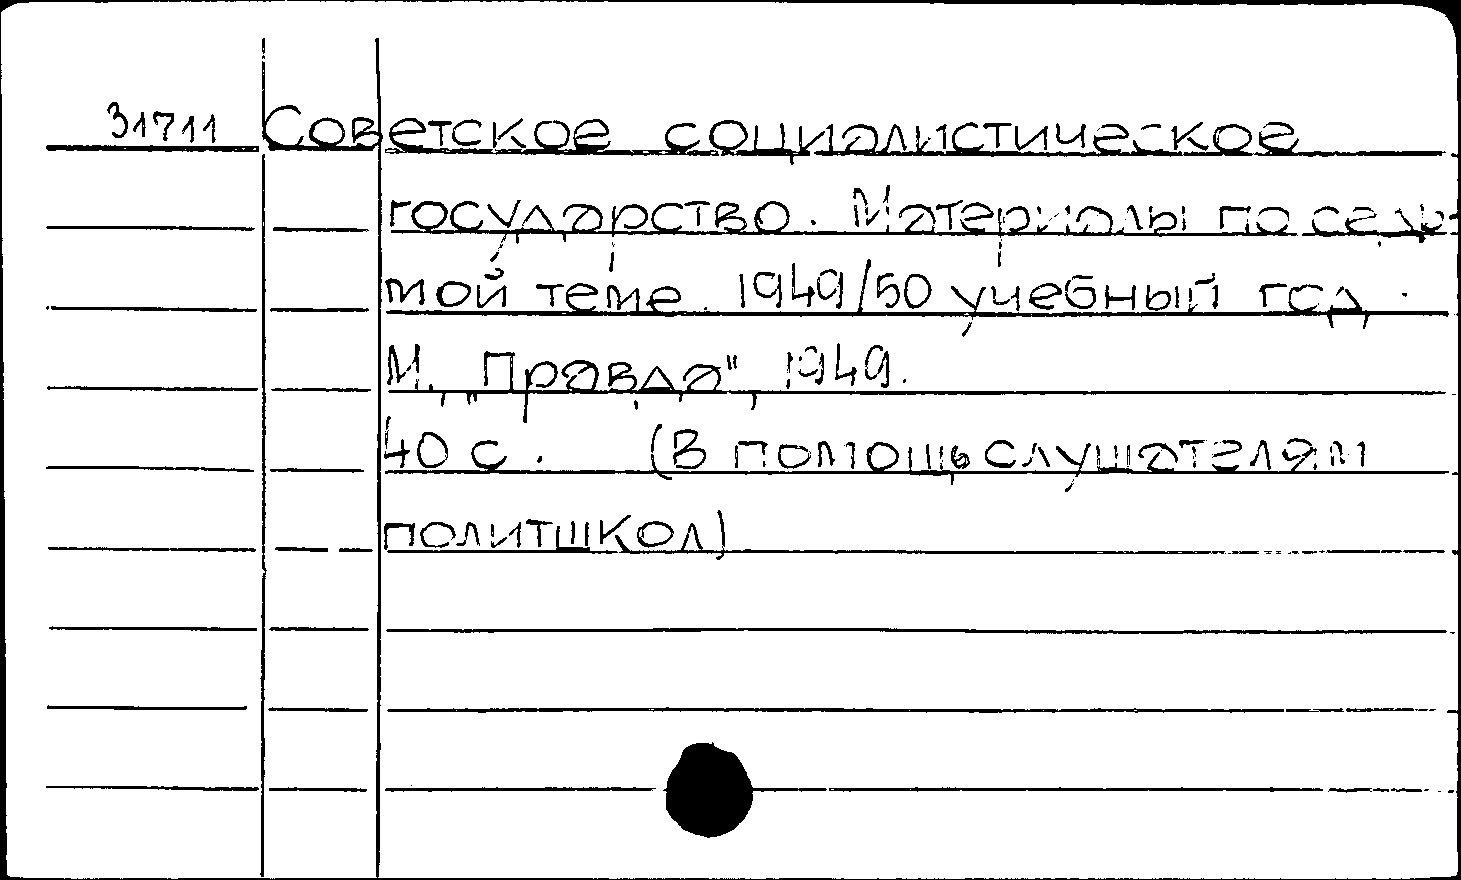 31711 Советское социалистическое
государство. Материалы по седь-
мой теме. 1949/50 учебный год.
М., „Правда", 1949.
40 с. (В помощь слушателям
политшкол)